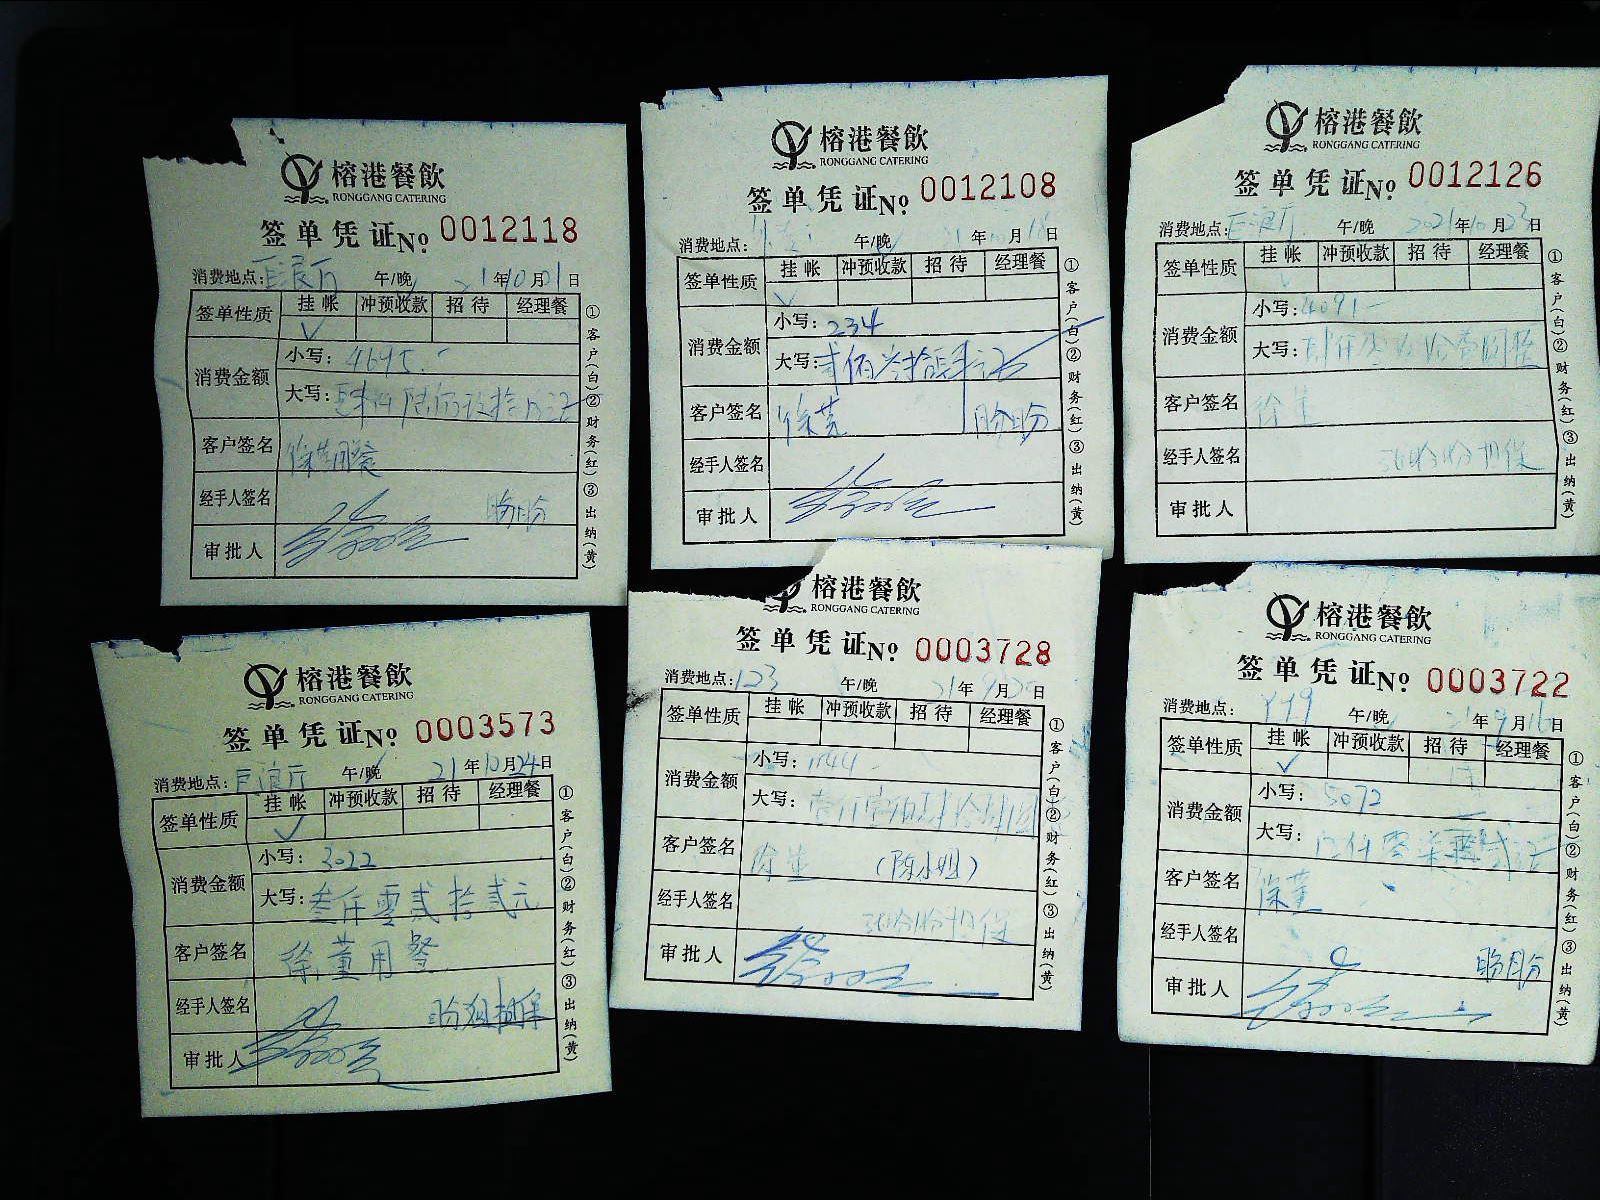 榕港餐飲
RONGGANG CATERING
签单凭证No. 0012118
消费地点：巨浪厅 午/晚 21年10月21日
签单性质 挂帐 冲预收款 招待 经理餐
✓
消费金额 小写：4695.-
大写：肆仟陆佰玖拾伍元
客户签名 徐董用餐
经手人签名 盼盼
审批人
①客户(白)②财务(红)③出纳(黄)
榕港餐飲
RONGGANG CATERING
签单凭证No. 0012108
消费地点： 午/晚 21年 月16日
签单性质 挂帐 冲预收款 招待 经理餐
✓
消费金额 小写：234
大写：贰佰叁拾肆元
客户签名 徐莞 盼盼
经手人签名
审批人
①客户(白)②财务(红)③出纳(黄)
榕港餐飲
RONGGANG CATERING
签单凭证No. 0012126
消费地点：巨浪厅 午/晚 2021年10月23日
签单性质 挂帐 冲预收款 招待 经理餐
✓
消费金额 小写：4091-
大写：肆仟零玖拾壹圆整
客户签名 徐董
经手人签名 盼盼担保
审批人
①客户(白)②财务(红)③出纳(黄)
榕港餐飲
RONGGANG CATERING
签单凭证No. 0003573
消费地点：巨浪厅 午/晚 21年10月24日
签单性质 挂帐 冲预收款 招待 经理餐
✓
消费金额 小写：3022
大写：叁仟零贰拾贰元
客户签名 徐董用餐
经手人签名 盼盼担保
审批人
①客户(白)②财务(红)③出纳(黄)
榕港餐飲
RONGGANG CATERING
签单凭证No. 0003728
消费地点：123 午/晚 21年9月 日
签单性质 挂帐 冲预收款 招待 经理餐
消费金额 小写：1144-
大写：壹仟壹佰肆拾肆
客户签名 徐董 （陈小姐）
经手人签名 盼盼担保
审批人
①客户(白)②财务(红)③出纳(黄)
榕港餐飲
RONGGANG CATERING
签单凭证No. 0003722
消费地点：199 午/晚 21年9月16日
签单性质 挂帐 冲预收款 招待 经理餐
✓
消费金额 小写：5072
大写：伍仟零柒拾贰元
客户签名 徐董
经手人签名 盼盼
审批人
①客户(白)②财务(红)③出纳(黄)